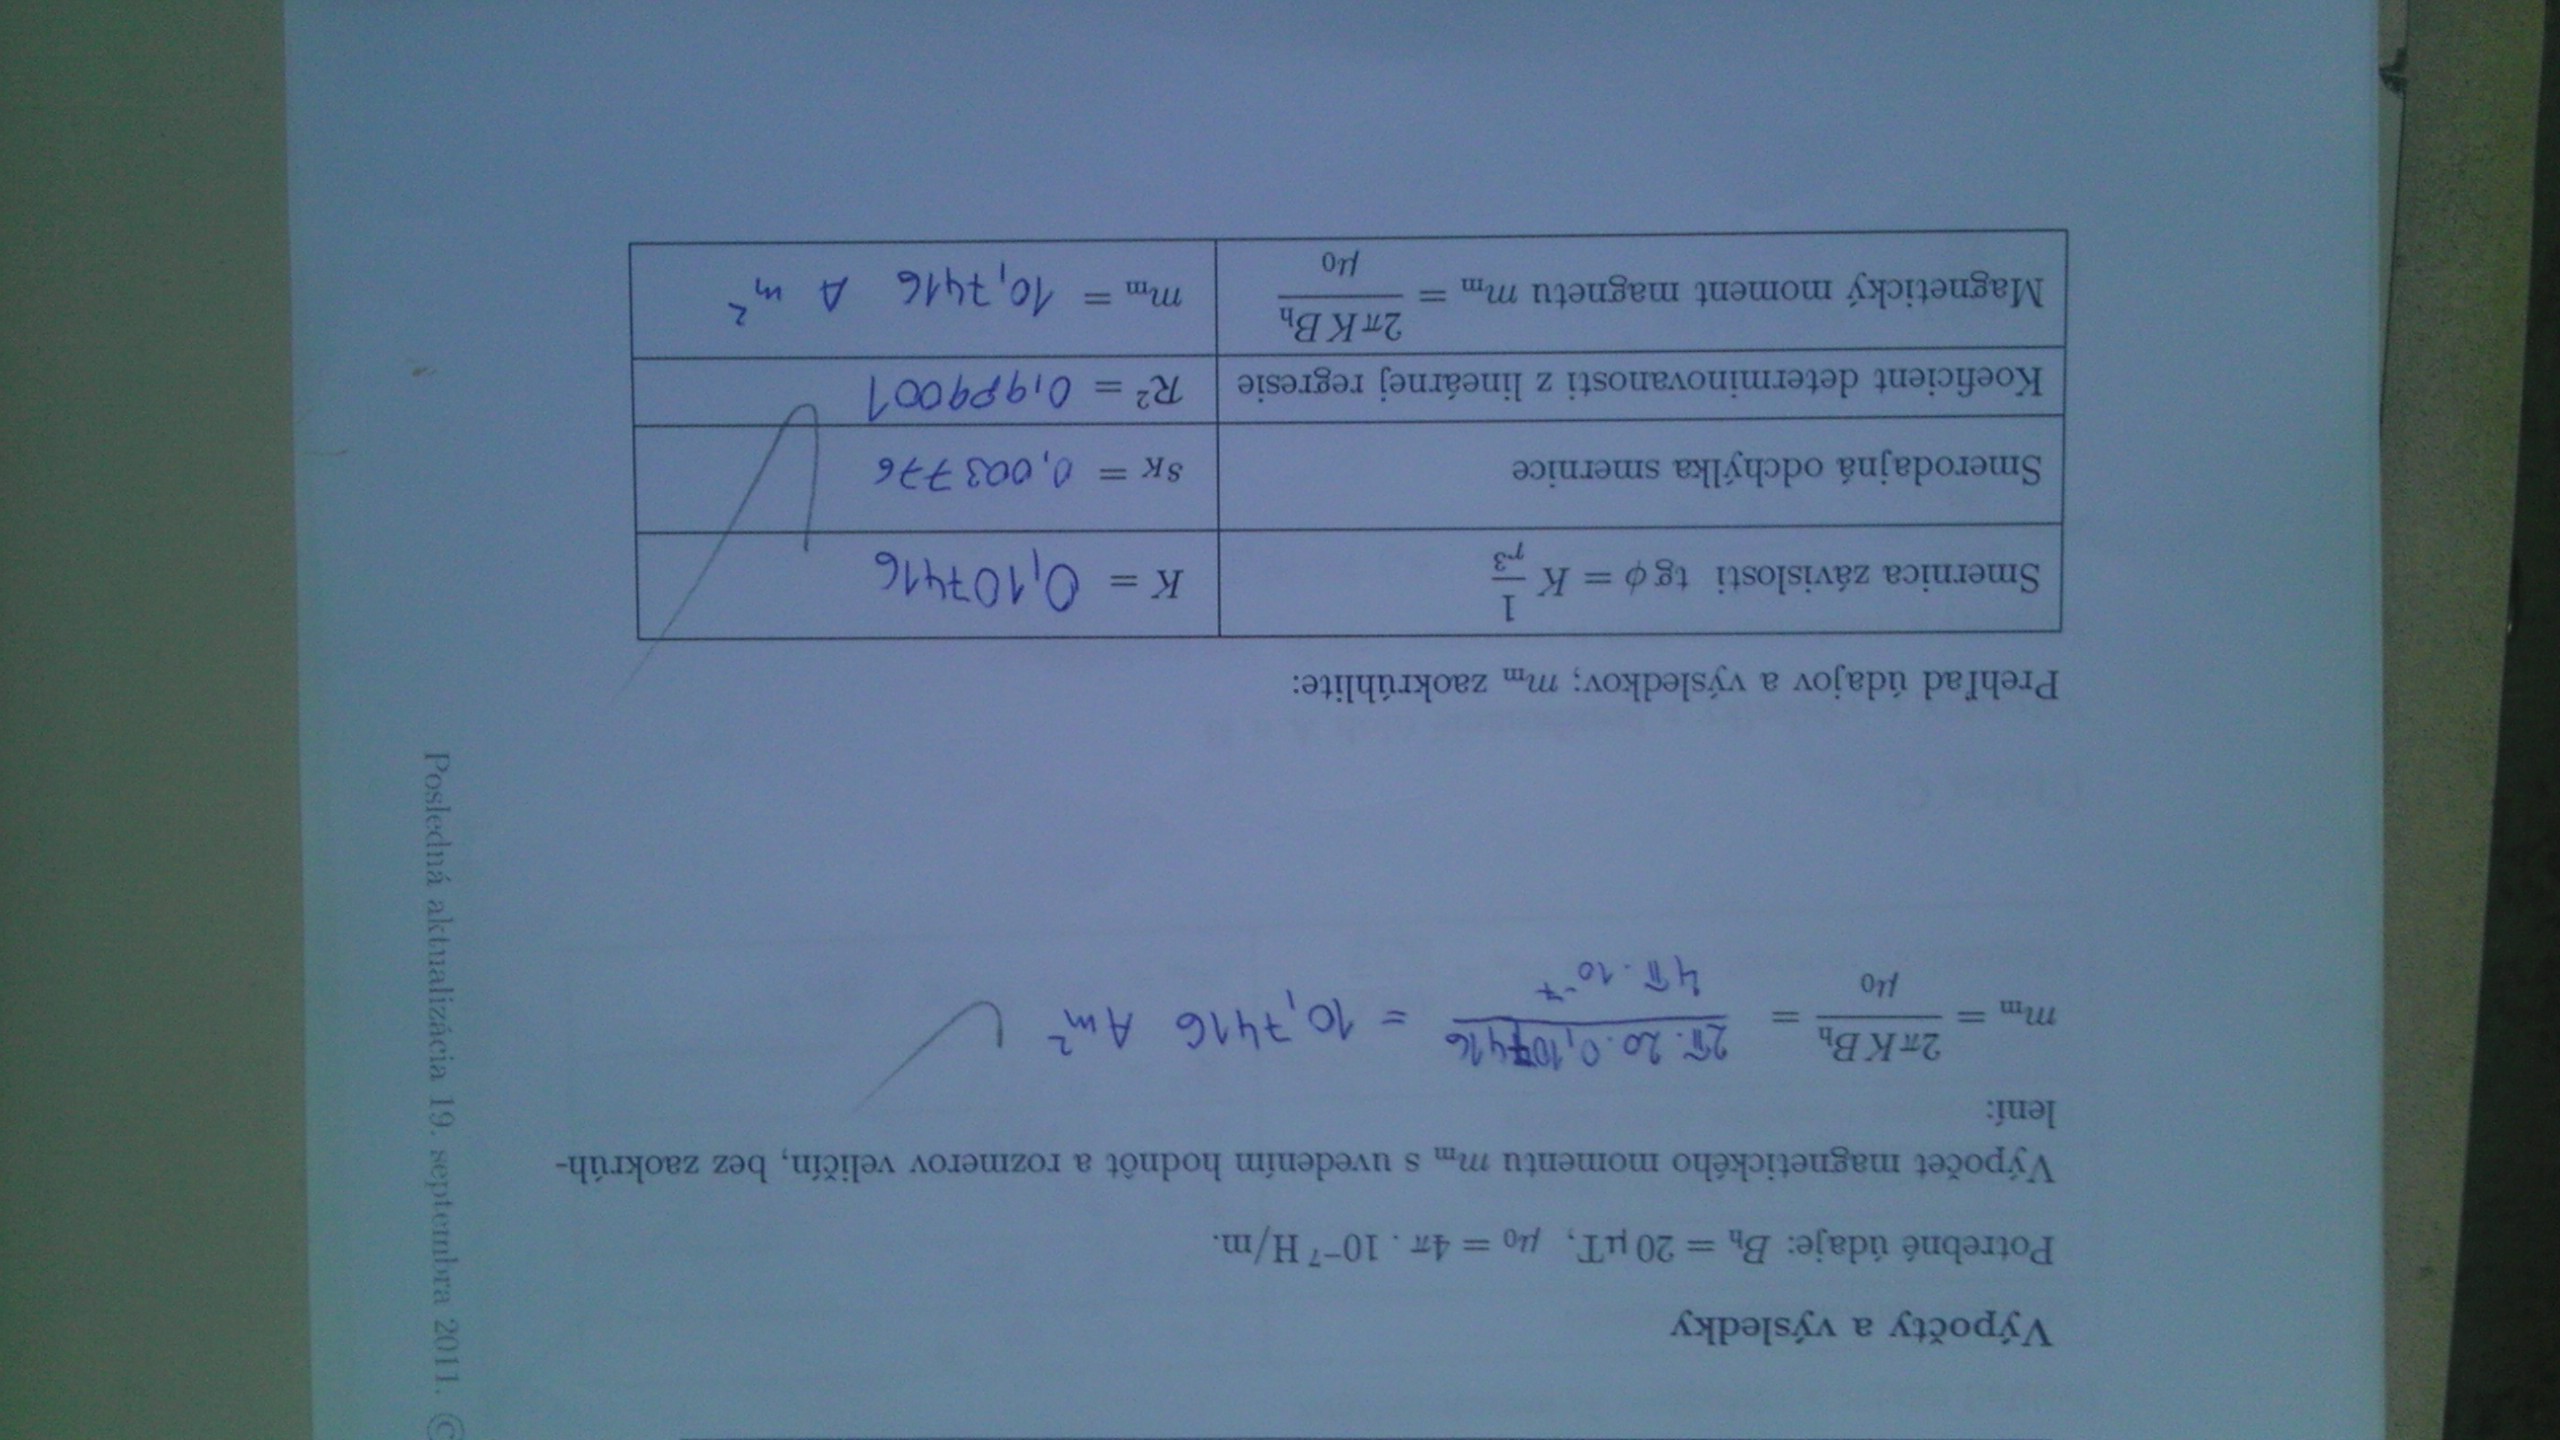 Výpočty a výsledky
Potrebné údaje: Bₕ = 20 μT, μ₀ = 4π . 10⁻⁷ H/m.
Výpočet magnetického momentu mₘ s uvedením hodnôt a rozmerov veličín, bez zaokrúh-
lení:
mₘ = 2πKBₕ / μ₀ = 2π . 20 . 0,107416 / 4π . 10⁻⁷ = 10,7416 Am²
Prehľad údajov a výsledkov; mₘ zaokrúhlite:
Smernica závislosti tg ϕ = K 1/r³ K = 0,107416
Smerodajná odchýlka smernice s_K = 0,003776
Koeficient determinovanosti z lineárnej regresie R² = 0,989001
Magnetický moment magnetu mₘ = 2πKBₕ / μ₀ mₘ = 10,7416 A m²
Posledná aktualizácia 19. septembra 2011. ©